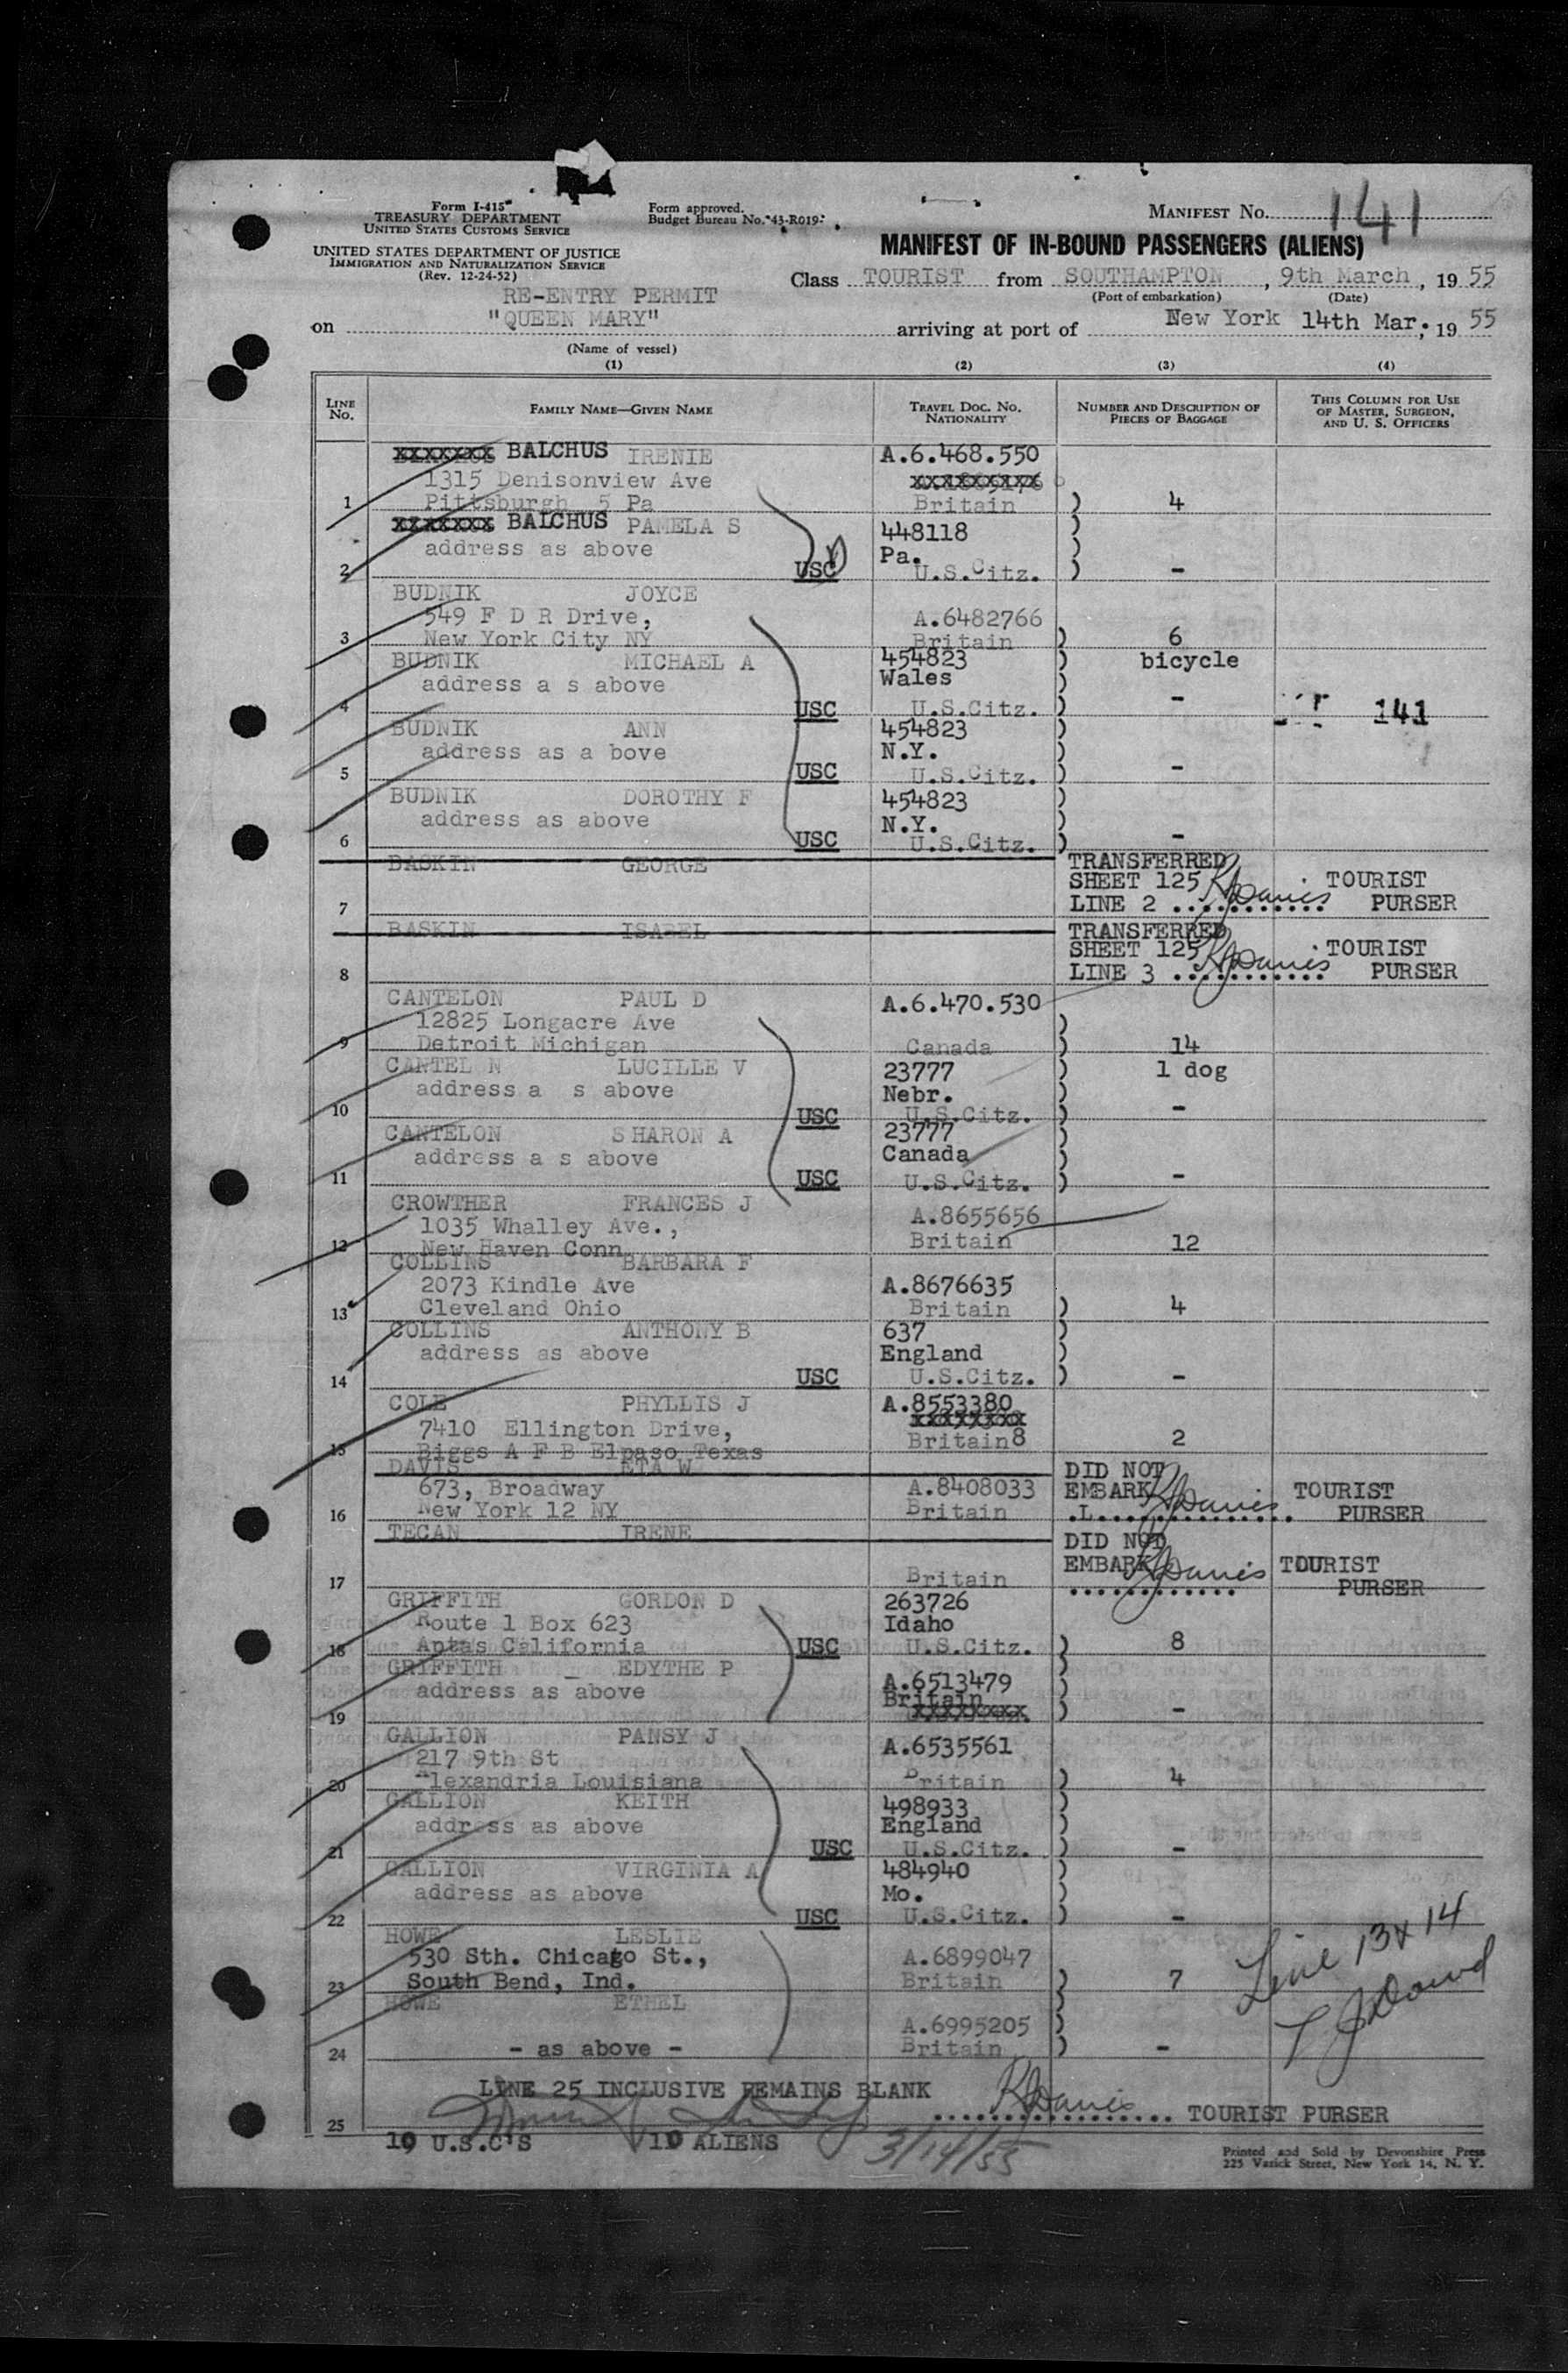 Form I-415
TREASURY DEPARTMENT
UNITED STATES CUSTOMS SERVICE
UNITED STATES DEPARTMENT OF JUSTICE
IMMIGRATION AND NATURALIZATION SERVICE
(Rev. 12-24-52)
Form approved.
Budget Bureau No. 43-R019
MANIFEST No. 141
MANIFEST OF IN-BOUND PASSENGERS (ALIENS)
Class TOURIST from SOUTHAMPTON, 9th March, 19 55
(Port of embarkation) (Date)
RE-ENTRY PERMIT
on "QUEEN MARY" arriving at port of New York 14th Mar. 19 55
(Name of vessel)
(1) (2) (3) (4)
LINE No. FAMILY NAME—GIVEN NAME TRAVEL DOC. No. NATIONALITY NUMBER AND DESCRIPTION OF PIECES OF BAGGAGE THIS COLUMN FOR USE OF MASTER, SURGEON, AND U. S. OFFICERS
xxxxxxx BALCHUS IRENIE A.6.468.550
1315 Denisonview Ave xxxxxxxxx
1 Pittsburgh 5 Pa Britain ) 4
xxxxxxx BALCHUS PAMELA S 448118 )
address as above Pa. )
2 USC U.S.Citz. ) -
BUDNIK JOYCE
549 F D R Drive, A.6482766
3 New York City NY Britain ) 6
BUDNIK MICHAEL A 454823 ) bicycle
address a s above Wales )
4 USC U.S.Citz. ) - 141
BUDNIK ANN 454823 )
address as a bove N.Y. )
5 USC U.S.Citz. ) -
BUDNIK DOROTHY F 454823 )
address as above N.Y. )
6 USC U.S.Citz. ) -
BASKIN GEORGE TRANSFERRED
SHEET 125 TOURIST
7 LINE 2 ............ PURSER
BASKIN ISABEL TRANSFERRED
SHEET 125 TOURIST
8 LINE 3 ............ PURSER
CANTELON PAUL D A.6.470.530
12825 Longacre Ave )
9 Detroit Michigan Canada ) 14
CANTEL N LUCILLE V 23777 ) 1 dog
address a s above Nebr. )
10 USC U.S.Citz. ) -
CANTELON SHARON A 23777 )
address a s above Canada )
11 USC U.S.Citz. ) -
CROWTHER FRANCES J A.8655656
1035 Whalley Ave., Britain
12 New Haven Conn 12
COLLINS BARBARA F
2073 Kindle Ave A.8676635
13 Cleveland Ohio Britain ) 4
COLLINS ANTHONY B 637 )
address as above England )
14 USC U.S.Citz. ) -
COLE PHYLLIS J A.8553380
7410 Ellington Drive, xxxxxxxx
15 Biggs A F B Elpaso Texas Britain8 2
DAVIS ETA W DID NOT
673, Broadway A.8408033 EMBARK TOURIST
16 New York 12 NY Britain .L.............. PURSER
TECAN IRENE DID NOT
EMBARK TOURIST
17 Britain ............ PURSER
GRIFFITH GORDON D 263726
Route 1 Box 623 Idaho
18 Aptas California USC U.S.Citz. ) 8
GRIFFITH _ EDYTHE P )
address as above A.6513479 )
Britain
19 xxxxxxxx ) -
GALLION PANSY J
217 9th St A.6535561
20 Alexandria Louisiana Britain ) 4
GALLION KEITH 498933 )
address as above England )
21 USC U.S.Citz. ) -
GALLION VIRGINIA A 484940 )
address as above Mo. )
22 USC U.S.Citz. ) -
HOWE LESLIE
530 Sth. Chicago St., A.6899047
23 South Bend, Ind. Britain ) 7
HOWE ETHEL )
A.6995205 )
24 - as above - Britain ) -
Line 13 & 14
LINE 25 INCLUSIVE REMAINS BLANK
25 ................. TOURIST PURSER
10 U.S.C'S 10 ALIENS 3/14/55
Printed and Sold by Devonshire Press
225 Varick Street, New York 14, N. Y.